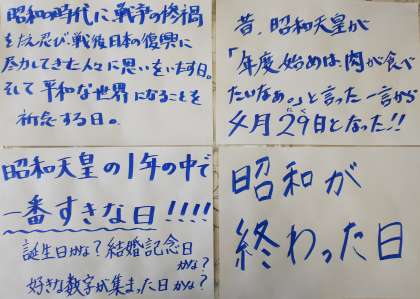 昭和の時代に戦争の惨禍
をたえ忍び戦後日本の復興に
尽力してきた人々に思いをいたす日。
そして平和な世界になることを
祈念する日。
昔、昭和天皇が
「年度始めは、肉が食べ
たいなぁ。」と言った一言から
4月29日となった!!
にく
昭和天皇の1年の中で
一番すきな日!!!!
誕生日かな?結婚記念日
かな?
好きな数字が集まった日かな?
昭和が
終わった日